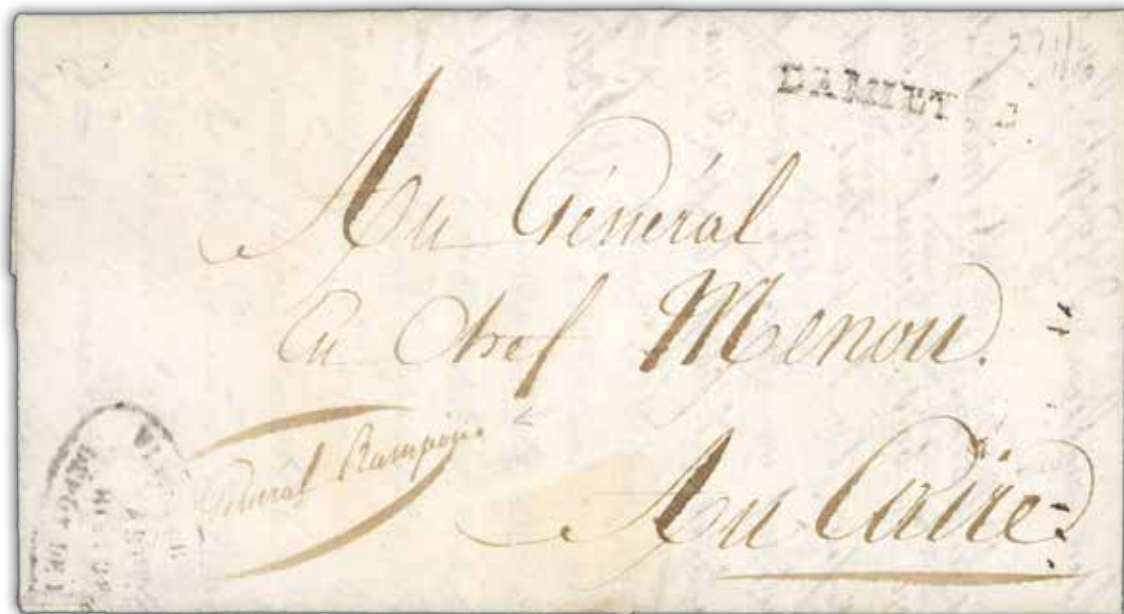 DAMIETTE
Au Général
En Chef Menou.
Général Rampon
Au Caire